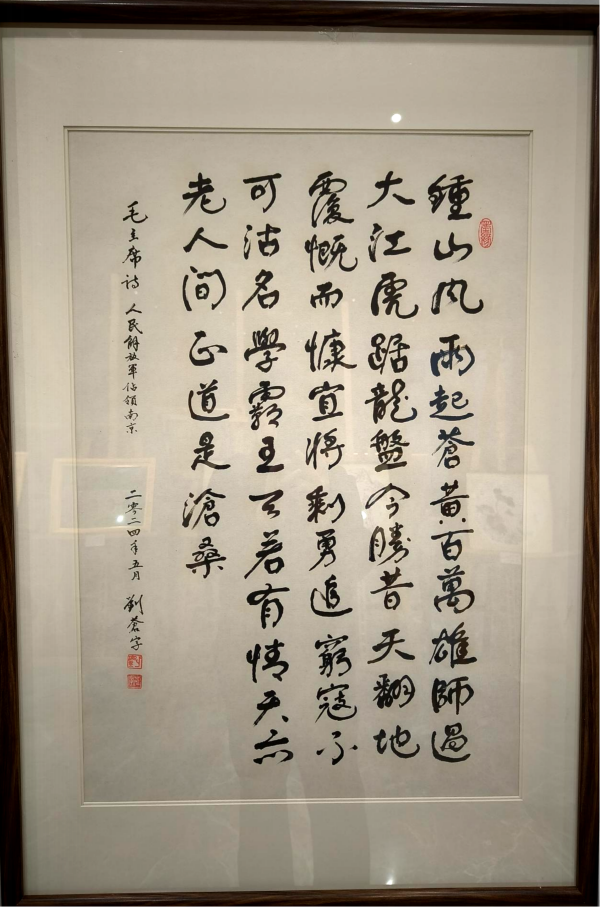 鍾山风雨起蒼黃百萬雄師過
大江虎踞龍盤今勝昔天翻地
覆慨而慷宜將剩勇追窮寇不
可沽名學霸王天若有情天亦
老人间正道是滄桑
毛主席诗 人民解放軍佔領南京 二零二四年五月 劉蒼字